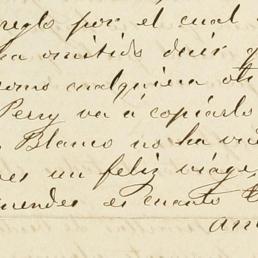 reglo por el cual
ha omitido decir q
como cualquiera ot
Perry va a copiarlo
Blanco no ha vu
es un feliz viage,
uendes es cuanto
am